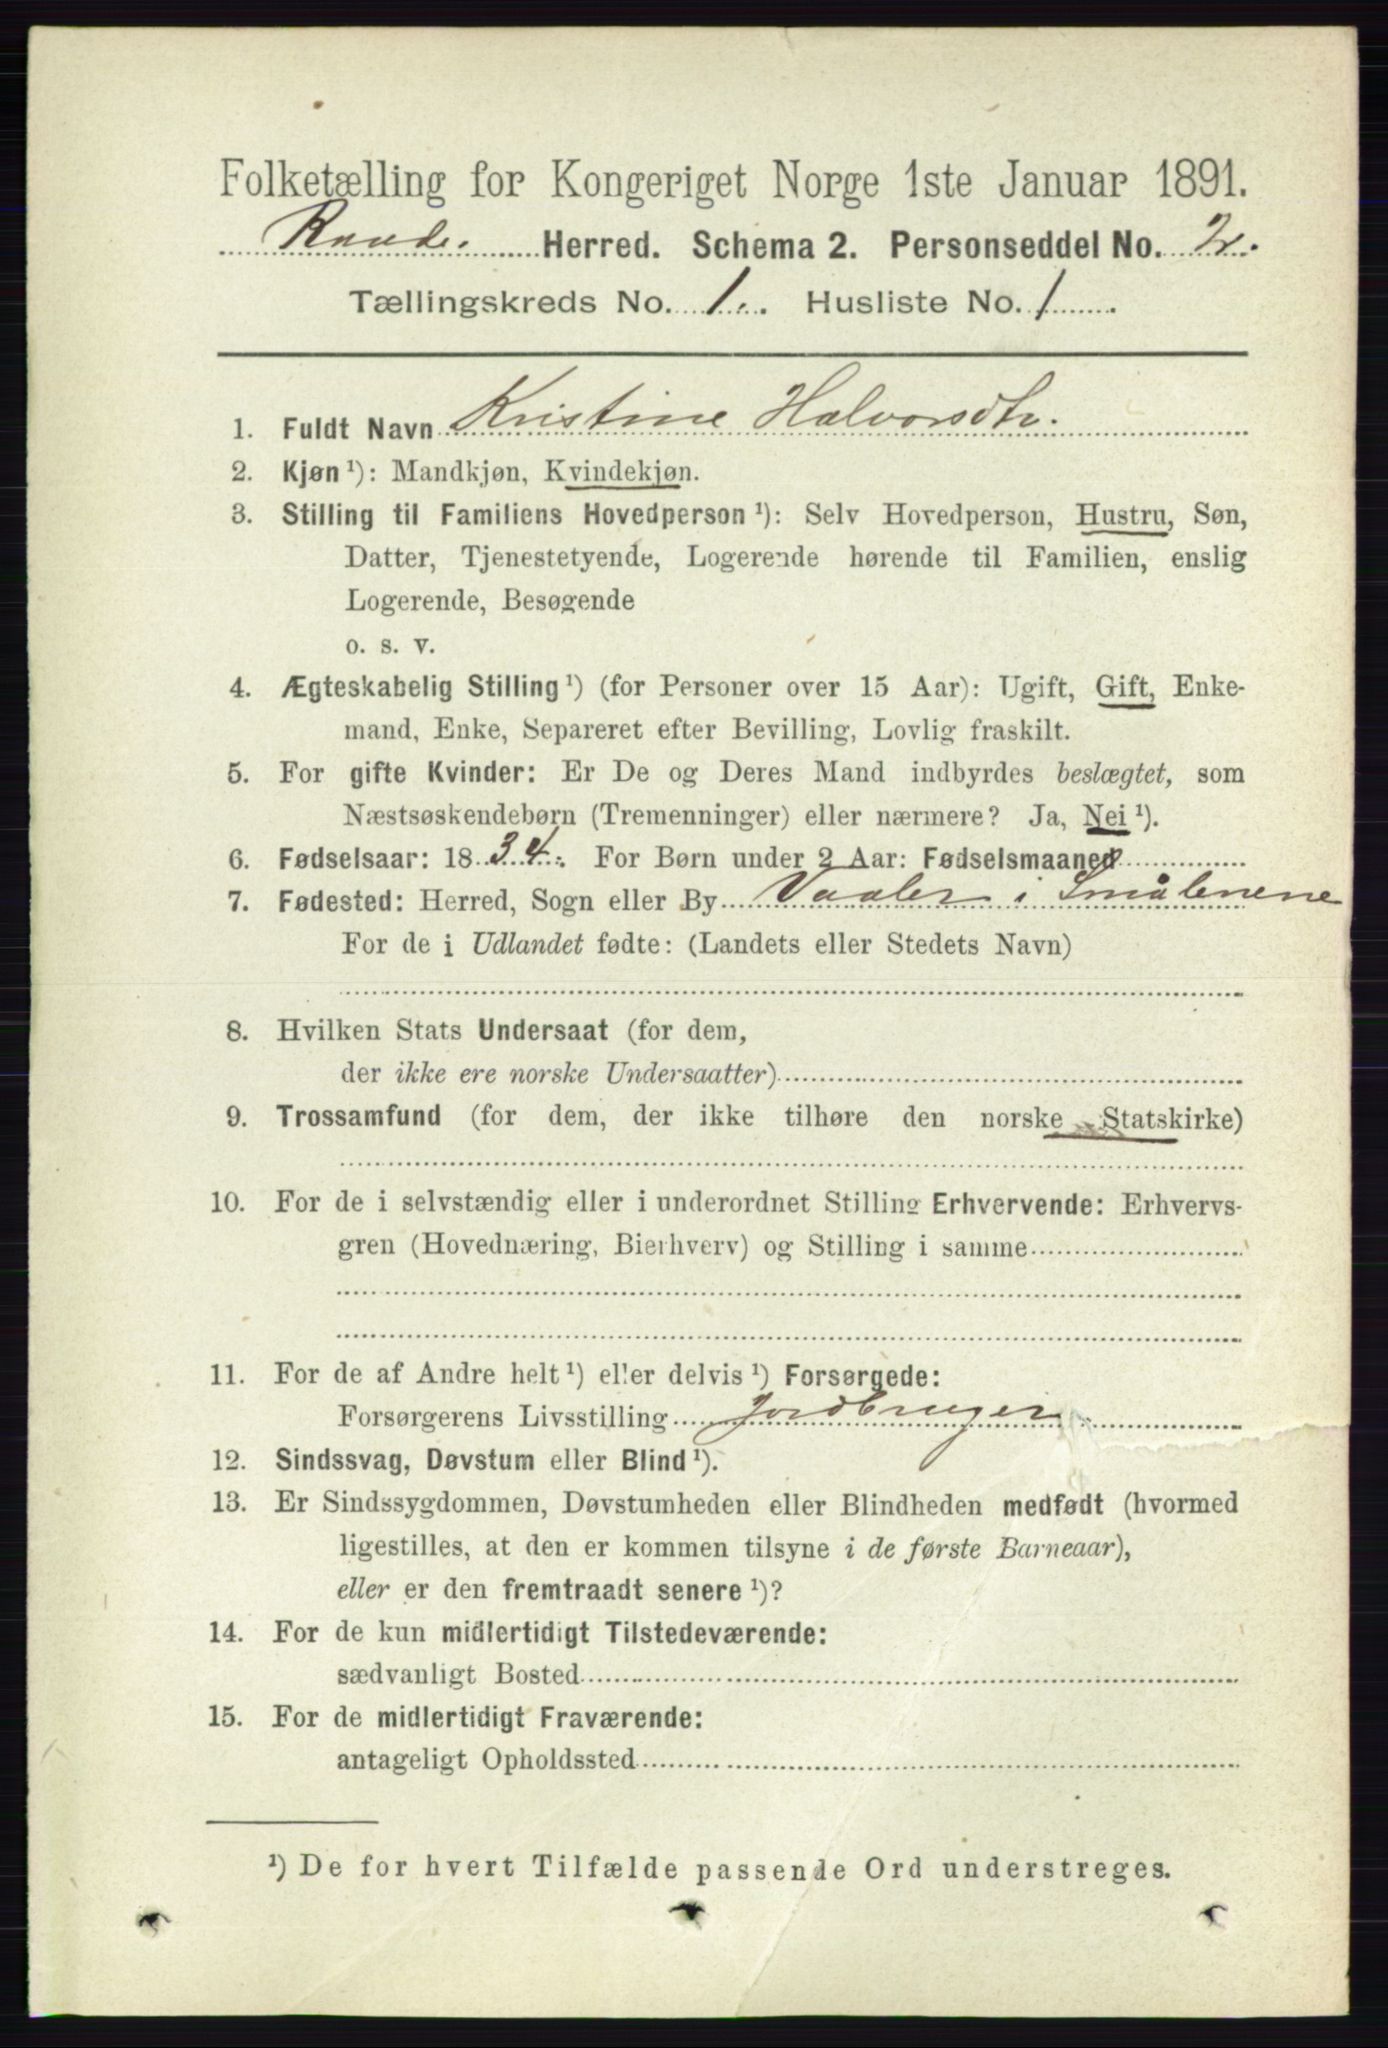 Folketælling for Kongeriget Norge 1ste Januar 1891.
Raade. Herred. Schema 2. Personseddel No. 2.
Tællingskreds No. 1. Husliste No. 1
1. Fuldt Navn Kristine Halvorsdtr.
2. Kjøn ¹): Mandkjøn, Kvindekjøn.
3. Stilling til Familiens Hovedperson ¹): Selv Hovedperson, Hustru, Søn,
Datter, Tjenestetyende, Logerende hørende til Familien, enslig
Logerende, Besøgende
o. s. v.
4. Ægteskabelig Stilling ¹) (for Personer over 15 Aar): Ugift, Gift, Enke-
mand, Enke, Separeret efter Bevilling, Lovlig fraskilt.
5. For gifte Kvinder: Er De og Deres Mand indbyrdes beslægtet, som
Næstsøskendebørn (Tremenninger) eller nærmere? Ja, Nei ¹).
6. Fødselsaar: 1834. For Børn under 2 Aar: Fødselsmaaned
7. Fødested: Herred, Sogn eller By Vaaler i Smålenene
For de i Udlandet fødte: (Landets eller Stedets Navn)
8. Hvilken Stats Undersaat (for dem,
der ikke ere norske Undersaatter)
9. Trossamfund (for dem, der ikke tilhøre den norske Statskirke)
10. For de i selvstændig eller i underordnet Stilling Erhvervende: Erhvervs-
gren (Hovednæring, Bierhverv) og Stilling i samme
11. For de af Andre helt ¹) eller delvis ¹) Forsørgede:
Forsørgerens Livsstilling Jordbruger
12. Sindssvag, Døvstum eller Blind ¹).
13. Er Sindssygdommen, Døvstumheden eller Blindheden medfødt (hvormed
ligestilles, at den er kommen tilsyne i de første Barneaar),
eller er den fremtraadt senere ¹)?
14. For de kun midlertidigt Tilstedeværende:
sædvanligt Bosted
15. For de midlertidigt Fraværende:
antageligt Opholdssted
¹) De for hvert Tilfælde passende Ord understreges.